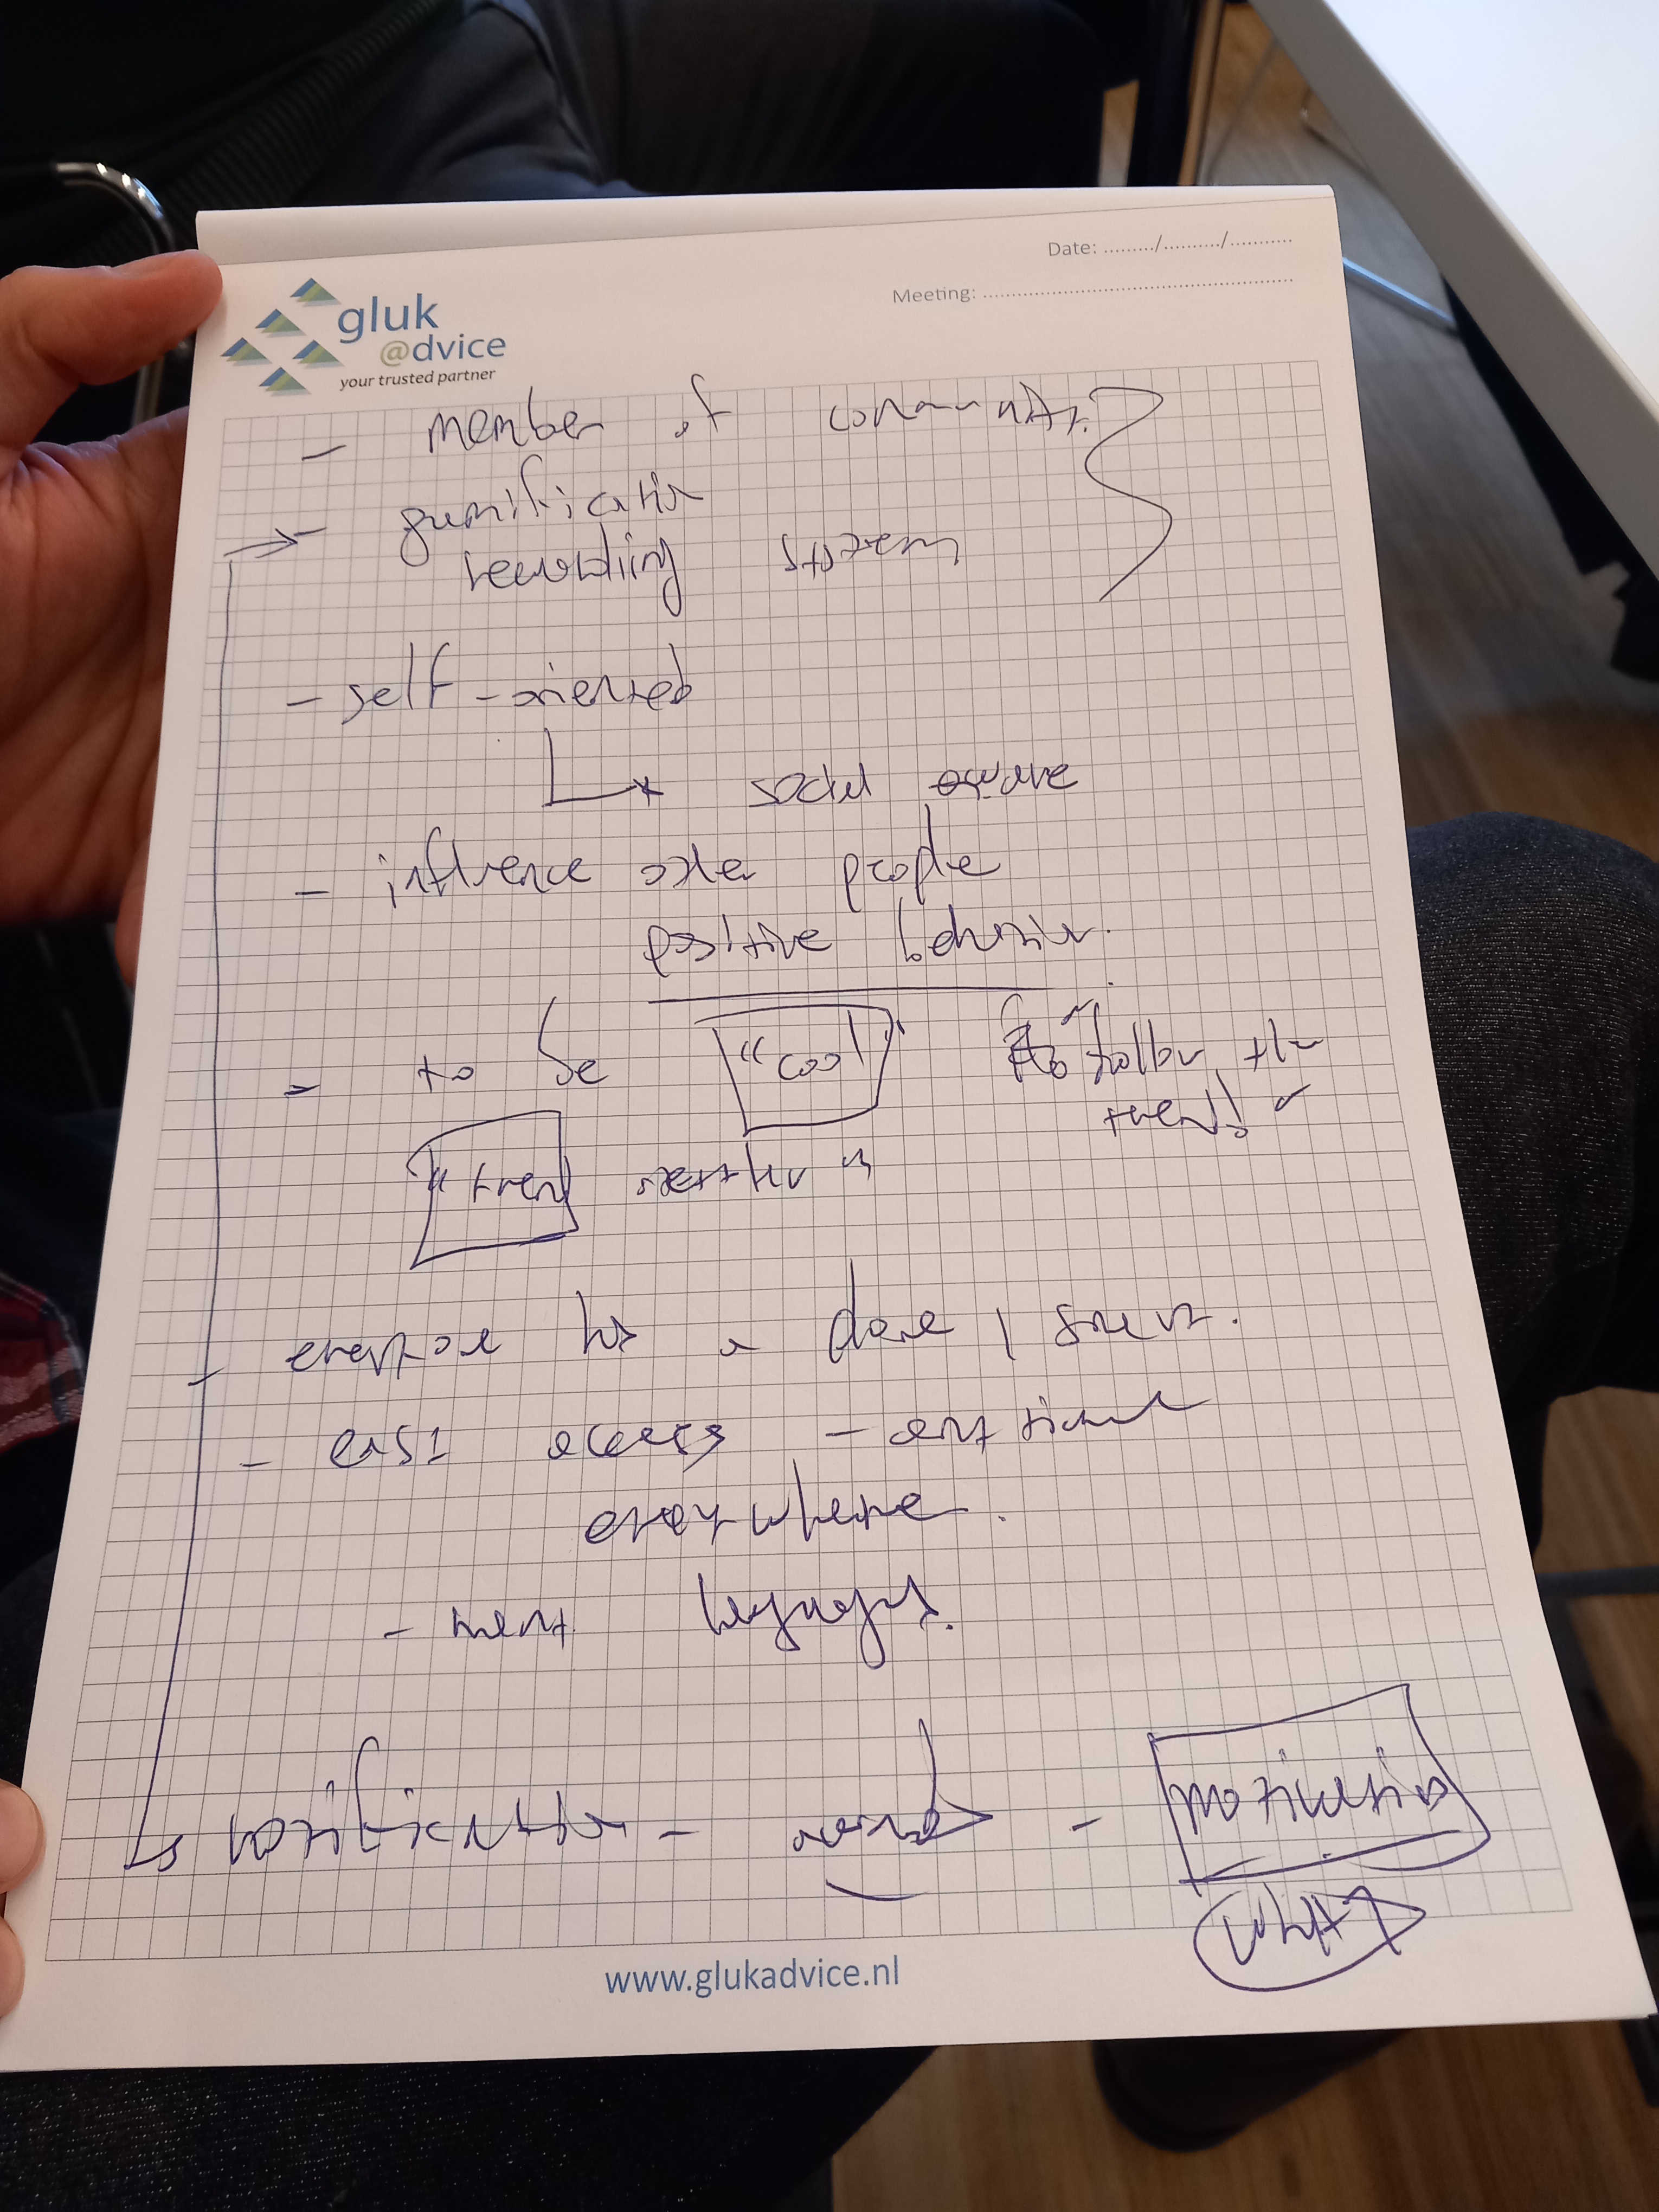 Date: ........./........../...........
Meeting: ......................................................
gluk
@dvice
your trusted partner
- member of community
- gamification
rewarding system
- self-oriented
social aware
- influence other people
positive behavior.
- to be "cool" to follow the
trend!
"trend setter"
- everyone has a
- easy access - any time
everywhere.
- languages.
notification - - motivation
WHAT
www.glukadvice.nl